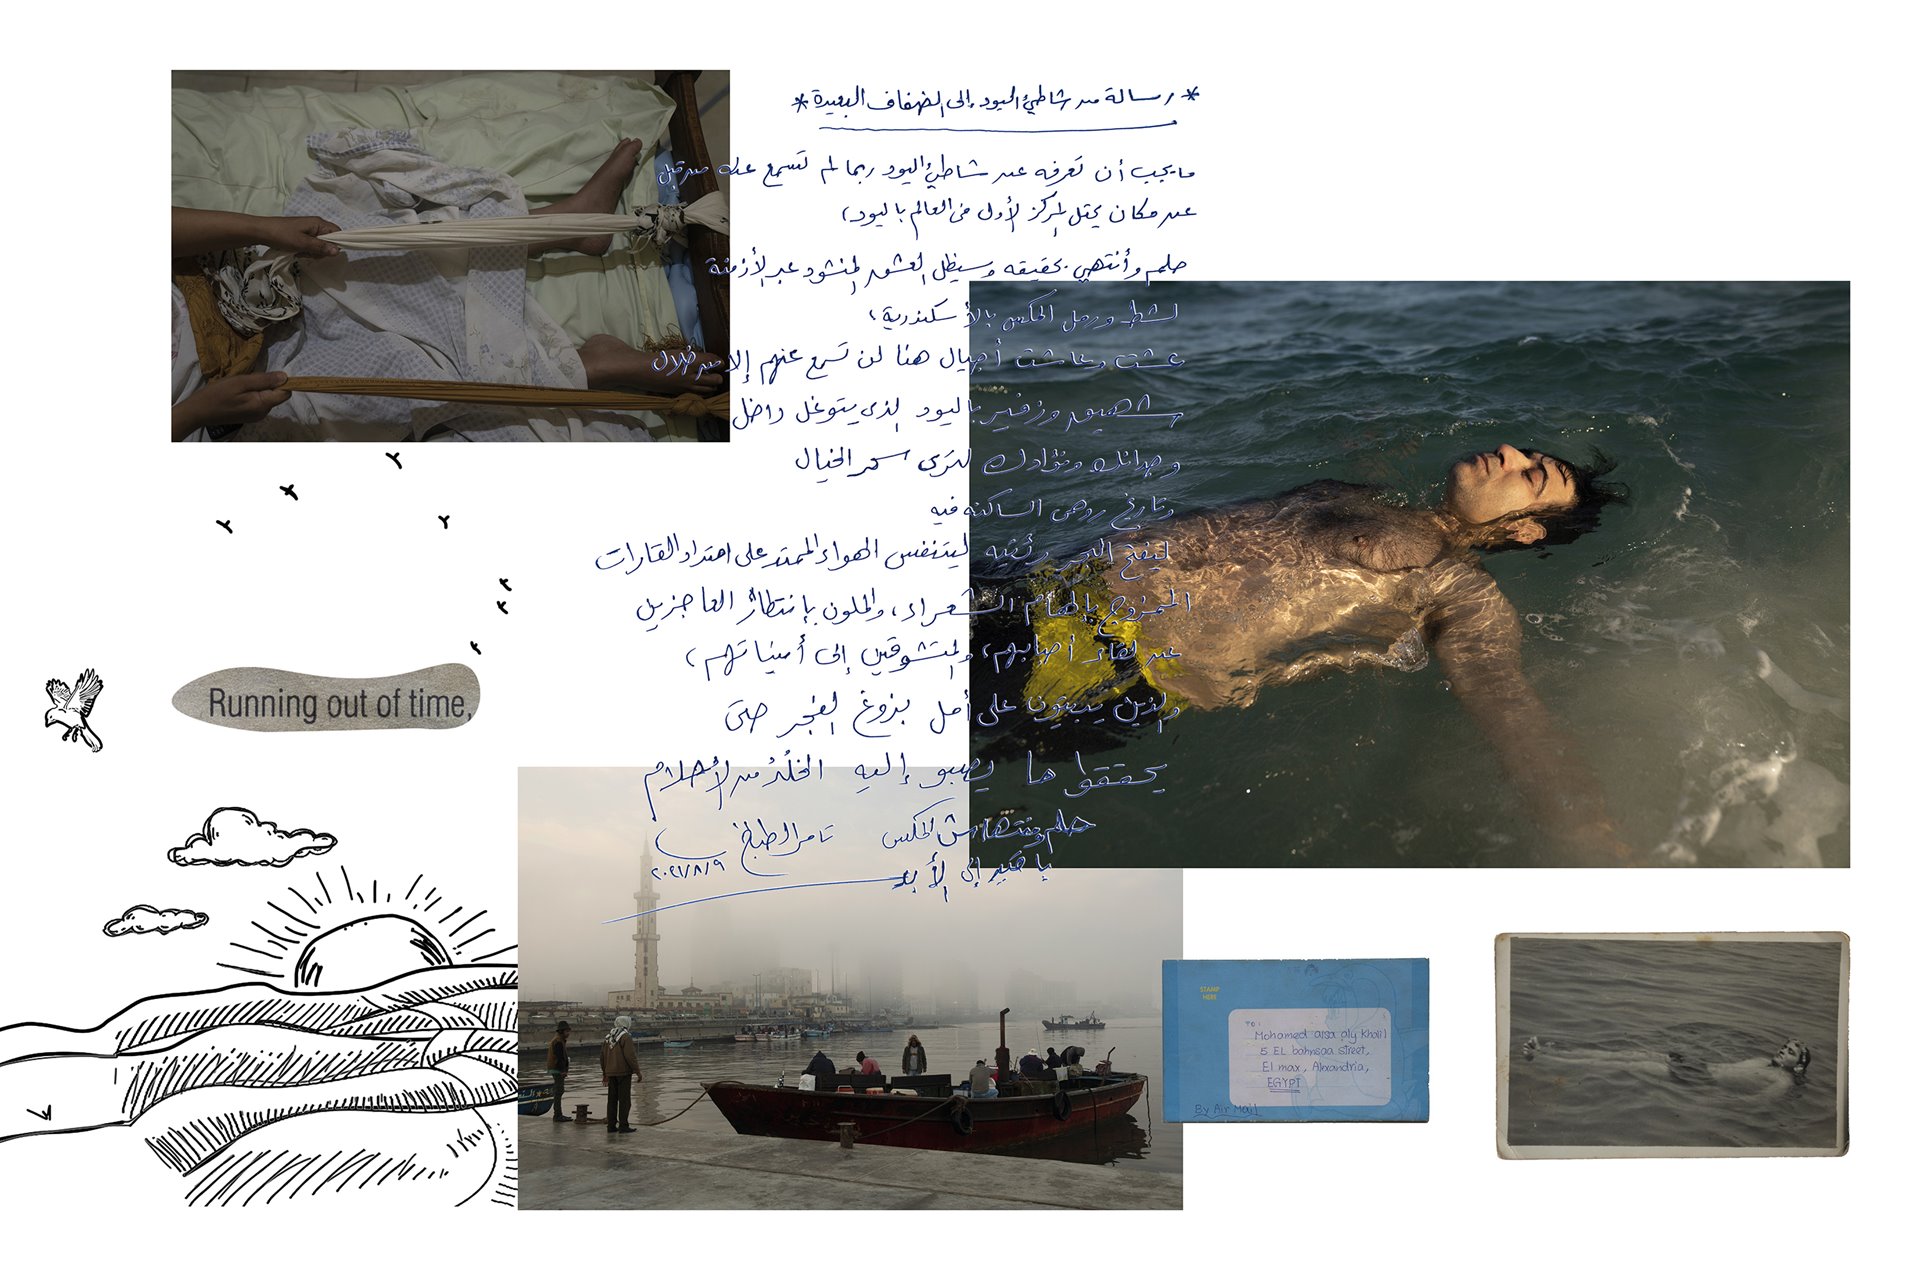 * رسالة من شاطئ اليود إلى الضفاف البعيدة *
ما يجب أن تعرفه عن شاطئ اليود ربما لم تسمع عنه من قبل
عن مكان يحتل المركز الأول في العالم باليود،
حلم وأنتهي بحقيقه وسيظل العشق المنشود عبر الأزمنة
لشط ورمل المكس بالأسكندرية،
عشت وعاشت أجيال هنا لن تسمع عنهم إلا من خلال
شهيق وزفير باليود الذي يتوغل داخل
وجدانك وفؤادك لترى سحر الخيال
وتاريخ روحي الساكنة فيه
ليفتح البحر رئتيه ليتنفس الهواء الممتد على امتداد القارات
الممزوج بإلهام الشعراء، والملون بإنتظار العاجزين
عن لقاء أحبابهم، والمتشوقين إلى أمنياتهم،
والذين يبيتون على أمل بزوغ الفجر حتى
يحققوا ما يصبو إليه الخلد من الأحلام
المكس تامر الطباخ
إلى الأبد
٢٠٢١/٨/٩
Running out of time,
STAMP
HERE
TO:
Mohamed aisa aly kholil
5 EL bahnsaa street,
El max, Alexandria,
EGYPT
By Air Mail